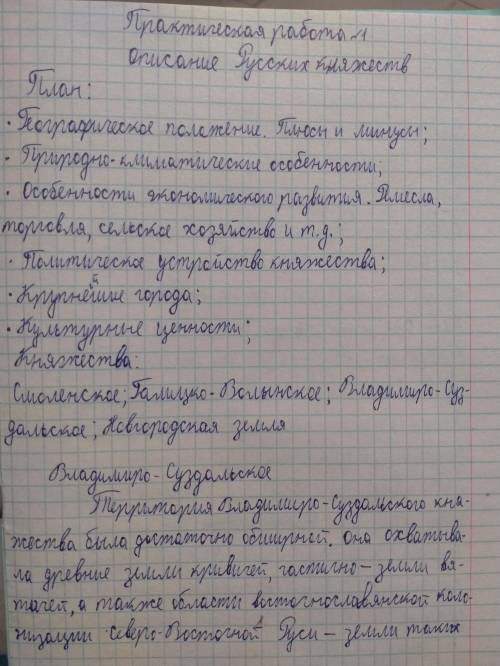 Практическая работа №1
Описание Русских княжеств
План:
· Географическое положение. Плюсы и минусы;
· Природно-климатические особенности;
· Особенности экономического развития. Ремесла,
торговля, сельское хозяйство и т.д.;
· Политическое устройство княжества;
· Крупнейшие города;
· Культурные ценности;
Княжества:
Смоленское; Галицко-Волынское; Владимиро-Суз-
дальское; Новгородская земля
Владимиро-Суздальское
Территория Владимиро-Суздальского кня-
жества была достаточно обширной. Она охватыва-
ла древние земли кривичей, частично — земли вя-
тичей, а также области восточнославянской коло-
низации Северо-Восточной Руси — земли таких